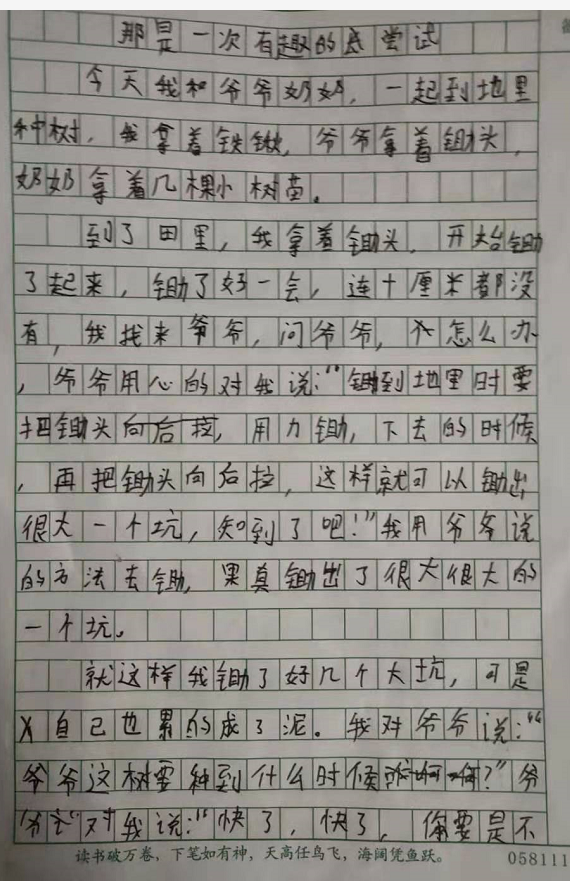 那是一次有趣的尝试
今天我和爷爷奶奶，一起到地里
种树，我拿着铁锹，爷爷拿着锄头，
奶奶拿着几棵小树苗。
到了田里，我拿着锄头，开始锄
了起来，锄了好一会，连十厘米都没
有，我找来爷爷，问爷爷，怎么办
，爷爷用心的对我说：“锄到地里时要
把锄头向后拉，用力锄，下去的时候
，再把锄头向后拉，这样就可以锄出
很大一个坑，知到了吧！”我用爷爷说
的方法去锄，果真锄出了很大很大的
一个坑。
就这样我锄了好几个大坑，可是
自己也累的成了泥。我对爷爷说：“
爷爷这树要种到什么时候啊？”爷
爷对我说：“快了，快了，你要是不
读书破万卷，下笔如有神，天高任鸟飞，海阔凭鱼跃。
058111